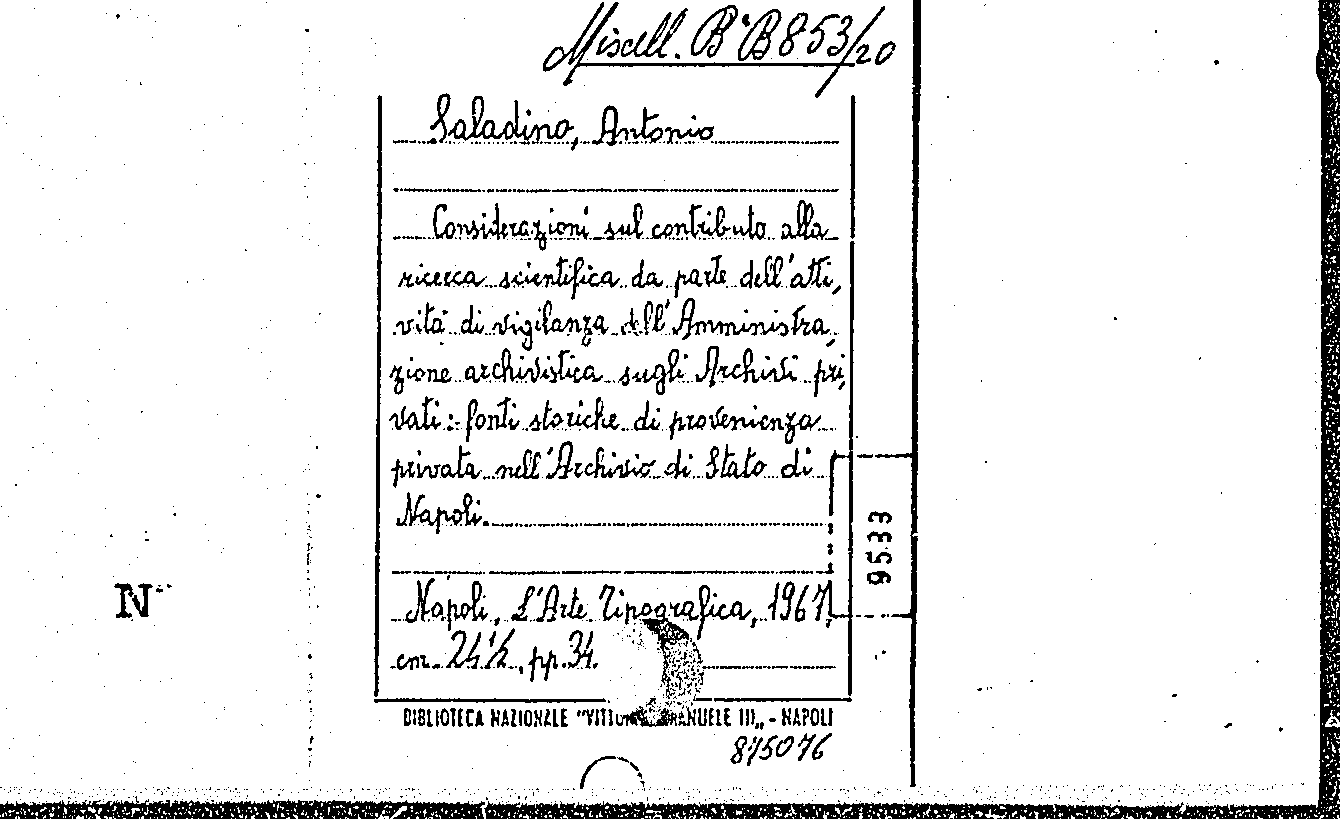 Miscell. B°B853/20
Saladino, Antonio
Considerazioni sul contributo alla
ricerca scientifica da parte dell'atti,
vità di vigilanza dell'Amministra,
zione archivistica sugli Archivi pri,
vati: fonti storiche di provenienza
privata nell'Archivio di Stato di
Napoli.
9533
N
Napoli, L'Arte Tipografica, 1967.
cm. 24½, pp. 34.
BIBLIOTECA NAZIONALE "VITTO ANUELE III„ - NAPOLI
875076